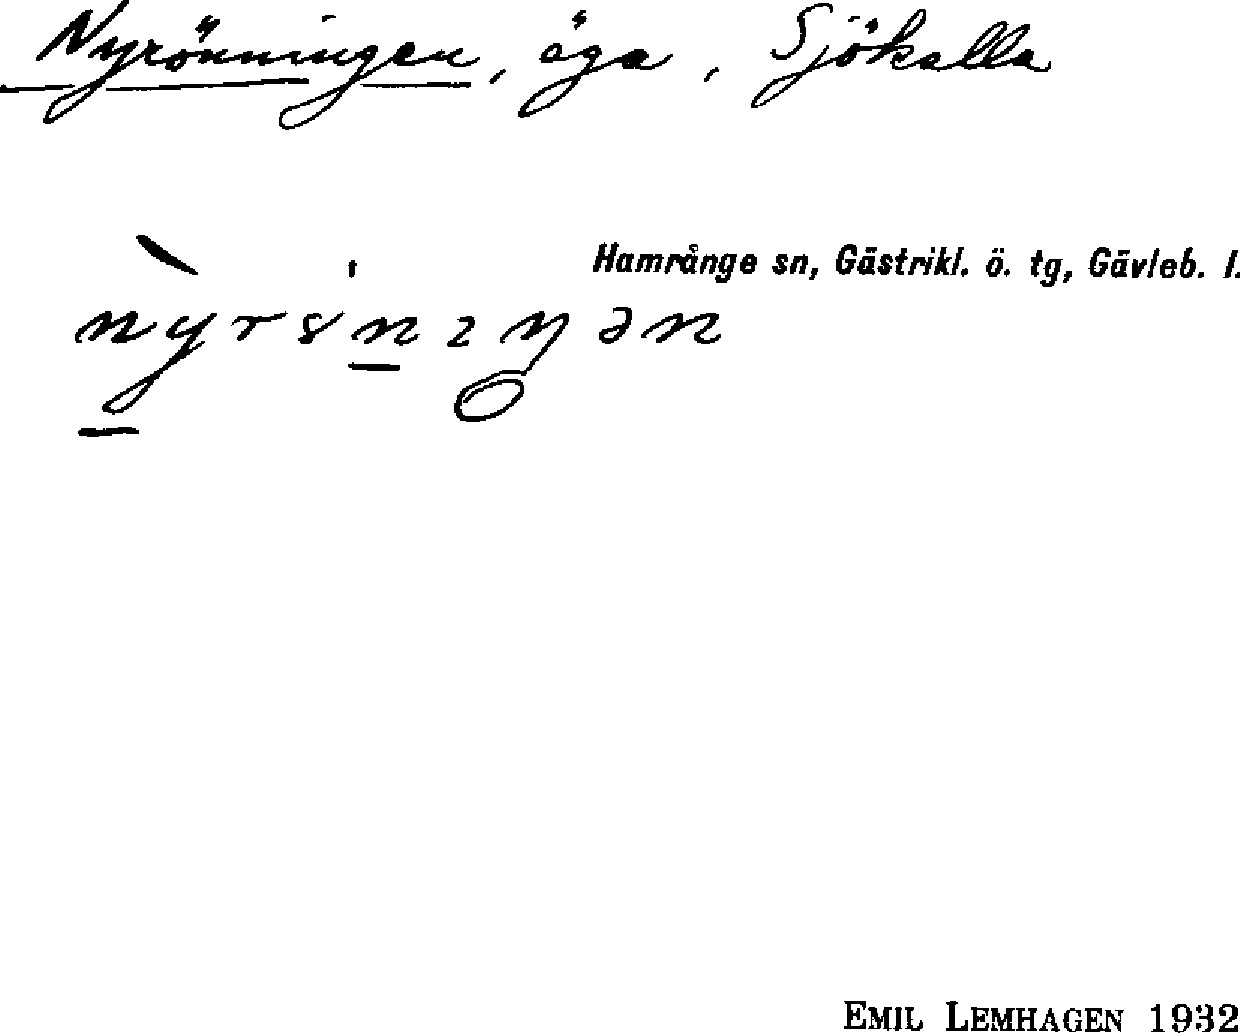 Nyrönningen, äga, Sjökalla
Hamrånge sn, Gästrikl. ö. tg, Gävleb. l.
EMIL LEMHAGEN 1932